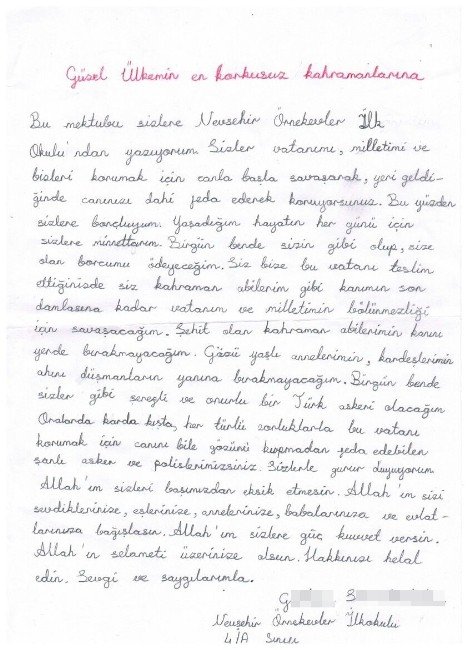 Güzel Ülkemin en korkusuz kahramanlarına
Bu mektubu sizlere Nevşehir Örnekevler İlk
Okulu'ndan yazıyorum Sizler vatanımı, milletimi ve
bizleri korumak için canla başla savaşarak, yeri geldi-
ğinde canınızı dahi feda ederek koruyorsunuz. Bu yüzden
sizlere borçluyum. Yaşadığım hayatın her günü için
sizlere minnettarım. Birgün bende sizin gibi olup, size
olan borcumu ödeyeceğim. Siz bize bu vatanı teslim
ettiğinizde siz kahraman abilerim gibi kanımın son
damlasına kadar vatanım ve milletimin bölünmezliği
için savaşacağım. Şehit olan kahraman abilerimin kanını
yerde bırakmayacağım. Gözü yaşlı annelerimin, kardeşlerimin
ahını düşmanların yanına bırakmayacağım. Birgün bende
sizler gibi şerefli ve onurlu bir Türk askeri olacağım
Oralarda karda kışta, her türlü zorluklarla bu vatanı
korumak için canını bile gözünü kırpmadan feda edebilen
şanlı asker ve polislerimizsiniz. Sizlerle gurur duyuyorum
Allah'ım sizleri başımızdan eksik etmesin. Allah'ım sizi
sevdiklerinize, eşlerinize, annelerinize, babalarınıza ve evlat-
larınıza bağışlasın. Allah'ım sizlere güç kuvvet versin.
Allah'ın selameti üzerinize olsun. Hakkınızı helal
edin. Sevgi ve saygılarımla.
Nevşehir Örnekevler İlkokulu
4/A Sınıfı